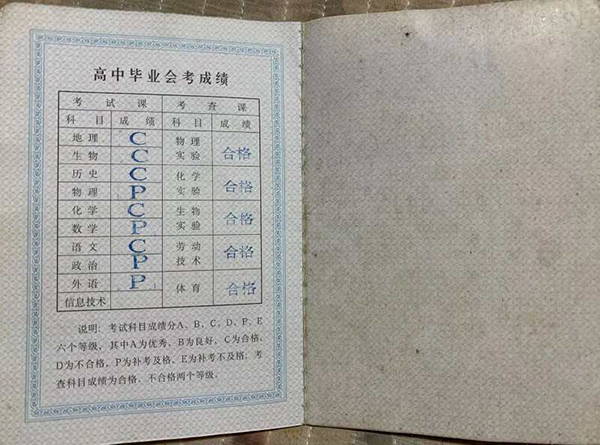 高中毕业会考成绩
考试课 考查课
科目 成绩 科目 成绩
地理 C 物理
生物 C 实验 合格
历史 C 化学
物理 P 实验 合格
化学 C 生物
数学 P 实验 合格
语文 C 劳动
政治 P 技术 合格
外语 P 体育 合格
信息技术
说明：考试科目成绩分A、B、C、D、P、E
六个等级，其中A为优秀，B为良好，C为合格，
D为不合格，P为补考及格，E为补考不及格，考
查科目成绩为合格、不合格两个等级。